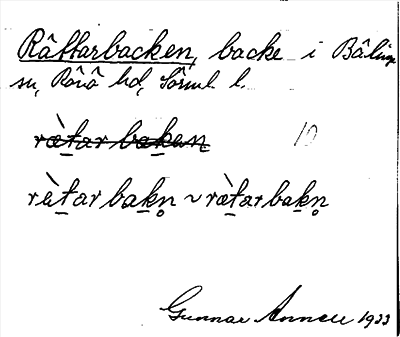 Råttarbacken, backe i Bälinge
sn, Rönö hd, Sörml. l.
rètar baken
10
rètar bakn̥ ~ rætarbakn̥
Gunnar Annell 1933